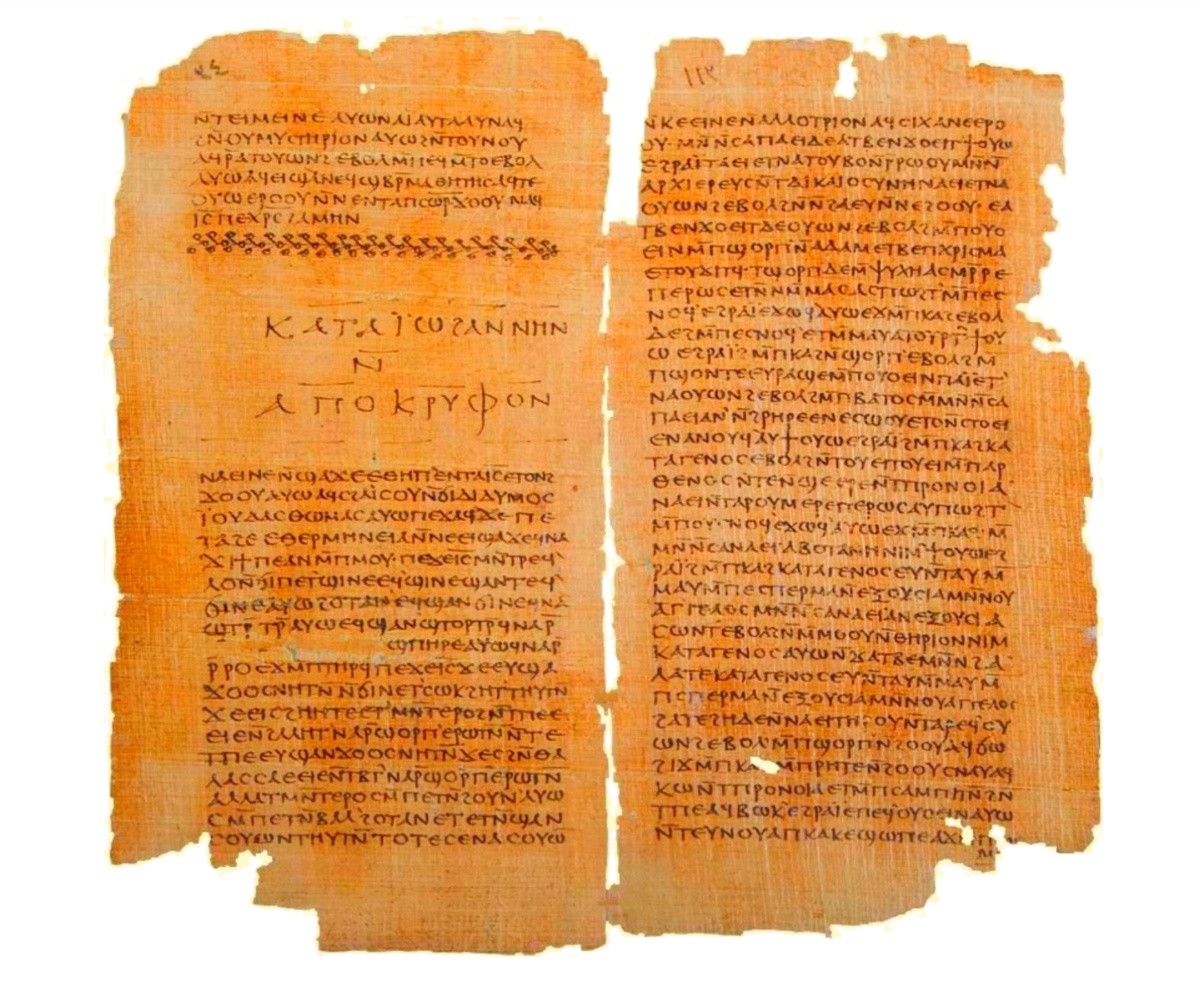 ⲛ̅ⲧⲉⲓⲙⲉⲓⲛⲉ ⲁⲩⲱ ⲛⲁⲓ ⲁⲩⲧⲁⲁⲩ ⲛⲁϥ
ϩⲛ̅ⲟⲩⲙⲩⲥⲧⲏⲣⲓⲟⲛ ⲁⲩⲱ ϩⲛ̅ⲧⲟⲩⲛⲟⲩ
ⲁϥⲣⲁⲧⲟⲩⲱⲛϩ ⲉⲃⲟⲗ ⲙ̅ⲡⲉϥⲙ̅ⲧⲟ ⲉⲃⲟⲗ
ⲁⲩⲱ ⲁϥⲉⲓ ϣⲁ ⲛⲉϥϣⲃⲣ̅ⲙⲁⲑⲏⲧⲏⲥ ⲁϥⲧⲉ
ⲟⲩⲱ ⲉⲣⲟⲟⲩ ⲛ̅ⲛⲉⲛⲧⲁⲡⲥⲱ̅ⲣ̅ ϫⲟⲟⲩ ⲛⲁϥ
ⲓ̅ⲥ̅ ⲡⲉⲭ̅ⲣ̅ⲥ̅ ϩⲁⲙⲏⲛ
ⲕⲁⲧⲁ ⲓ̈ⲱϩⲁⲛⲛⲏⲛ
ⲛ̅
ⲁⲡⲟⲕⲣⲩⲫⲟⲛ
ⲛⲁⲉⲓ ⲛⲉ ⲛ̅ϣⲁϫⲉ ⲉⲑⲏⲡ ⲉⲛⲧⲁⲓ̅ⲥ̅ ⲉⲧⲟⲛϩ
ϫⲟⲟⲩ ⲁⲩⲱ ⲁϥⲥϩⲁⲓ̈ⲥⲟⲩ ⲛ̅ϭⲓ ⲇⲓⲇⲩⲙⲟⲥ
ⲓ̈ⲟⲩⲇⲁⲥ ⲑⲱⲙⲁⲥ ⲁⲩⲱ ⲡⲉϫⲁϥ ϫⲉ ⲡⲉ
ⲧⲁϩⲉ ⲉⲑⲉⲣⲙⲏⲛⲉⲓⲁ ⲛ̅ⲛⲉⲉⲓϣⲁϫⲉ ϥⲛⲁ
ϫⲓ ϯⲡⲉ ⲁⲛ ⲙ̅ⲡⲙⲟⲩ ⲡⲉϫⲉ ⲓ̅ⲥ̅ ⲙⲛ̅ⲧⲣⲉϥ
ⲗⲟ ⲛ̅ϭⲓ ⲡⲉⲧϣⲓⲛⲉ ⲉϥϣⲓⲛⲉ ϣⲁⲛⲧⲉϥ
ϭⲓⲛⲉ ⲁⲩⲱ ϩⲟⲧⲁⲛ ⲉϥϣⲁⲛϭⲓⲛⲉ ϥⲛⲁ
ϣⲧⲣ̅ⲧⲣ̅ ⲁⲩⲱ ⲉϥϣⲁⲛϣⲧⲟⲣⲧⲣ̅ ϥⲛⲁⲣ̅
ϣⲡⲏⲣⲉ ⲁⲩⲱ ϥⲛⲁⲣ̅
ⲣ̅ⲣⲟ ⲉϫⲙ̅ ⲡⲧⲏⲣϥ ⲡⲉϫⲉ ⲓ̅ⲥ̅ ϫⲉ ⲉⲩϣⲁ
ϫⲟⲟⲥ ⲛⲏⲧⲛ̅ ⲛ̅ϭⲓ ⲛⲉⲧⲥⲱⲕ ϩⲏⲧ ⲧⲏⲩⲧⲛ̅
ϫⲉ ⲉⲓⲥϩⲏⲏⲧⲉ ⲉⲧⲙⲛ̅ⲧⲉⲣⲟ ϩⲛ̅ ⲧⲡⲉ ⲉ
ⲉⲓⲉ ⲛ̅ϩⲁⲗⲏⲧ ⲛⲁⲣ̅ϣⲟⲣⲡ ⲉⲣⲱⲧⲛ̅ ⲛ̅ⲧⲉ
ⲧⲡⲉ ⲉⲩϣⲁⲛϫⲟⲟⲥ ⲛⲏⲧⲛ̅ ϫⲉ ⲥϩⲛ̅ ⲑⲁ
ⲗⲁⲥⲥⲁ ⲉⲉⲓⲉ ⲛ̅ⲧⲃⲧ ⲛⲁⲣ̅ϣⲟⲣⲡ ⲉⲣⲱⲧⲛ̅
ⲁⲗⲗⲁ ⲧⲙⲛ̅ⲧⲉⲣⲟ ⲥⲙ̅ⲡⲉⲧⲛ̅ϩⲟⲩⲛ ⲁⲩⲱ
ⲥⲙ̅ⲡⲉⲧⲛ̅ⲃⲁⲗ ϩⲟⲧⲁⲛ ⲉⲧⲉⲧⲛ̅ϣⲁⲛ
ⲥⲟⲩⲱⲛ ⲧⲏⲩⲧⲛ̅ ⲧⲟⲧⲉ ⲥⲉⲛⲁⲥⲟⲩⲱ
ⲛ̅ⲕⲉⲉⲓⲛⲉ ⲛ̅ⲁⲗⲗⲟⲧⲣⲓⲟⲛ ⲁϥⲥⲓⲭⲁⲛⲉ ⲉⲣⲟ
ⲟⲩ ⲙⲛ̅ⲛ̅ⲥⲁ ⲡⲁⲉⲓ ⲇⲉ ⲁⲧⲃⲉⲛϫⲟⲉ ϯⲟⲩⲱ
ⲉϩⲣⲁⲓ̈ ⲧⲁⲉⲓ ⲉⲧⲛⲁⲧⲟⲩⲃⲟ ⲛ̅ⲣ̅ⲣⲱⲟⲩ ⲙⲛ̅ⲛ̅
ⲁⲣⲭⲓⲉⲣⲉⲩⲥ ⲛ̅ⲧⲇⲓⲕⲁⲓⲟⲥⲩⲛⲏ ⲛⲁⲉⲓ ⲉⲧⲛⲁ
ⲟⲩⲱⲛϩ ⲉⲃⲟⲗ ϩⲛ̅ⲛ̅ϩⲁⲉⲩ ⲛ̅ⲛⲉϩⲟⲟⲩ ⲉⲁ
ⲧⲃⲉⲛϫⲟⲉⲓⲧ ⲇⲉ ⲟⲩⲱⲛϩ ⲉⲃⲟⲗ ϩⲙ̅ ⲡⲟⲩⲟ
ⲉⲓⲛ ⲙ̅ⲡϣⲟⲣⲡ ⲛ̅ⲁⲇⲁⲙ ⲉⲧⲃⲉ ⲡⲭⲣⲓⲥⲙⲁ
ⲉⲧⲟⲩϫⲓⲧϥ ⲧϣⲟⲣⲡ ⲇⲉ ⲙ̅ⲯⲩⲭⲏ ⲁⲥⲙⲣ̅ⲣⲉ
ⲡⲉⲣⲱⲥ ⲉⲧⲛ̅ⲙ̅ⲙⲁⲥ ⲁⲥⲡⲱϩⲧ ⲙ̅ⲡⲉⲥ
ⲥⲛⲟϥ ⲉϩⲣⲁⲓ̈ ⲉϫⲱϥ ⲁⲩⲱ ⲉϫⲙ̅ ⲡⲕⲁϩ ⲉⲃⲟⲗ
ⲇⲉ ϩⲙ̅ ⲡⲉⲥⲛⲟϥ ⲉⲧⲙ̅ⲙⲁⲩ ⲁⲡⲟⲩⲣⲧ ϯⲟⲩ
ⲱ ⲉϩⲣⲁⲓ̈ ϩⲓϫⲙ̅ ⲡⲕⲁϩ ⲛ̅ϣⲟⲣⲡ ⲉⲃⲟⲗ ϩⲙ̅
ⲡϣⲟⲛⲧⲉ ⲉⲩⲣⲁϣⲉ ⲙ̅ⲡⲟⲩⲟⲉⲓⲛ ⲡⲁⲓ̈ ⲉⲧ
ⲛⲁⲟⲩⲱⲛϩ ⲉⲃⲟⲗ ϩⲙ̅ ⲡⲃⲁⲧⲟⲥ ⲙⲛ̅ⲛ̅ⲥⲁ
ⲡⲁⲉⲓ ⲁⲛϩⲣⲏⲣⲉ ⲉⲛⲉⲥⲱⲟⲩ ⲉⲧⲟⲛⲥⲧⲟⲉⲓ
ⲉⲛⲁⲛⲟⲩϥ ⲁⲩϯⲟⲩⲱ ⲉϩⲣⲁⲓ̈ ϩⲙ̅ ⲡⲕⲁϩ ⲕⲁ
ⲧⲁ ⲅⲉⲛⲟⲥ ⲉⲃⲟⲗ ϩⲛ̅ ⲧⲟⲩⲉⲓ ⲧⲟⲩⲉⲓ ⲙ̅ⲡⲁⲣ
ⲑⲉⲛⲟⲥ ⲛ̅ⲧⲉ ⲛ̅ϣⲉⲉⲣⲉ ⲛ̅ⲧⲡⲣⲟⲛⲟⲓⲁ
ⲛⲁⲉⲓ ⲛ̅ⲧⲁⲣⲟⲩⲙⲉⲣⲉ ⲡⲉⲣⲱⲥ ⲁⲩⲡⲱϩⲧ
ⲙ̅ⲡⲟⲩⲥⲛⲟϥ ⲉϫⲱϥ ⲁⲩⲱ ⲉϫⲙ̅ ⲡⲕⲁϩ
ⲙⲛ̅ⲛ̅ⲥⲁ ⲛⲁⲉⲓ ⲁⲃⲟⲧⲁⲛⲏ ⲛⲓⲙ ϯⲟⲩⲱ ⲉϩ
ⲣⲁⲓ̈ ϩⲙ̅ ⲡⲕⲁϩ ⲕⲁⲧⲁ ⲅⲉⲛⲟⲥ ⲉⲩⲛ̅ⲧⲁⲩ ⲙ̅
ⲙⲁⲩ ⲙ̅ⲡⲉⲥⲡⲉⲣⲙⲁ ⲛ̅ⲉⲝⲟⲩⲥⲓⲁ ⲙⲛ̅ ⲛⲟⲩ
ⲁⲅⲅⲉⲗⲟⲥ ⲙⲛ̅ⲛ̅ⲥⲁ ⲛⲁⲉⲓ ⲁⲛⲉⲝⲟⲩⲥⲓⲁ
ⲥⲱⲛⲧ ⲉⲃⲟⲗ ϩⲛ̅ ⲙ̅ⲙⲟⲟⲩ ⲛ̅ⲑⲏⲣⲓⲟⲛ ⲛⲓⲙ
ⲕⲁⲧⲁ ⲅⲉⲛⲟⲥ ⲁⲩⲱ ⲛ̅ϫⲁⲧⲃⲉ ⲙⲛ̅ ⲛ̅ϩⲁ
ⲗⲁⲧⲉ ⲕⲁⲧⲁ ⲅⲉⲛⲟⲥ ⲉⲩⲛ̅ⲧⲁⲩ ⲙ̅ⲙⲁⲩ ⲙ̅
ⲡⲥⲡⲉⲣⲙⲁ ⲛ̅ⲉⲝⲟⲩⲥⲓⲁ ⲙⲛ̅ ⲛⲟⲩⲁⲅⲅⲉⲗⲟⲥ
ϩⲁⲧⲉϩⲏ ⲇⲉ ⲛ̅ⲛⲁⲉⲓ ⲧⲏⲣⲟⲩ ⲛ̅ⲧⲁⲣⲉϥⲟⲩ
ⲱⲛϩ ⲉⲃⲟⲗ ⲙ̅ⲡϣⲟⲣⲡ ⲛ̅ϩⲟⲟⲩ ⲁϥϭⲱ
ϩⲓϫⲙ̅ ⲡⲕⲁϩ ⲙ̅ⲡⲣⲏⲧⲉ ⲛ̅ϩⲟⲟⲩ ⲥⲛⲁⲩ ⲁϥ
ⲕⲱ ⲛ̅ⲧⲡⲣⲟⲛⲟⲓⲁ ⲉⲧⲙ̅ⲡⲥⲁ ⲙⲡⲓⲧⲛ̅ ϩⲛ̅
ⲧⲡⲉ ⲁϥⲃⲱⲕ ⲉϩⲣⲁⲓ̈ ⲉⲡⲉϥⲟⲩⲟⲉⲓⲛ ⲁⲩⲱ
ⲛ̅ⲧⲉⲩⲛⲟⲩ ⲁⲡⲕⲁⲕⲉ ϣⲱⲡⲉ